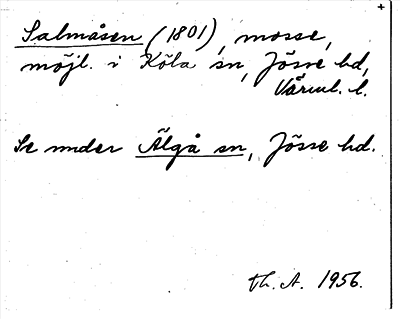 Salmåsen (1801), mosse,
möjl. i Köla sn, Jösse hd,
Värml. l.
Se under Älgå sn, Jösse hd.
Th. A. 1956.